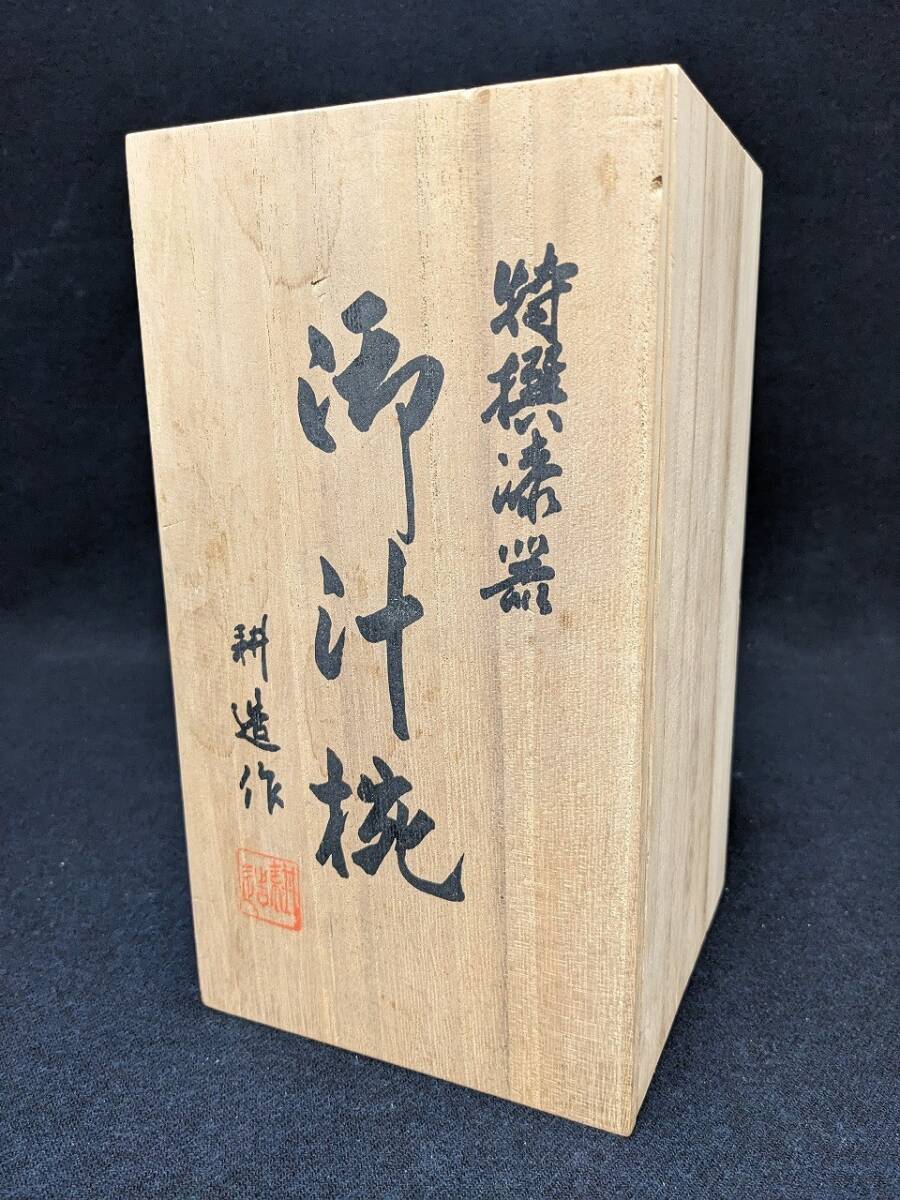 特撰漆器
御汁椀
耕造作
耕造